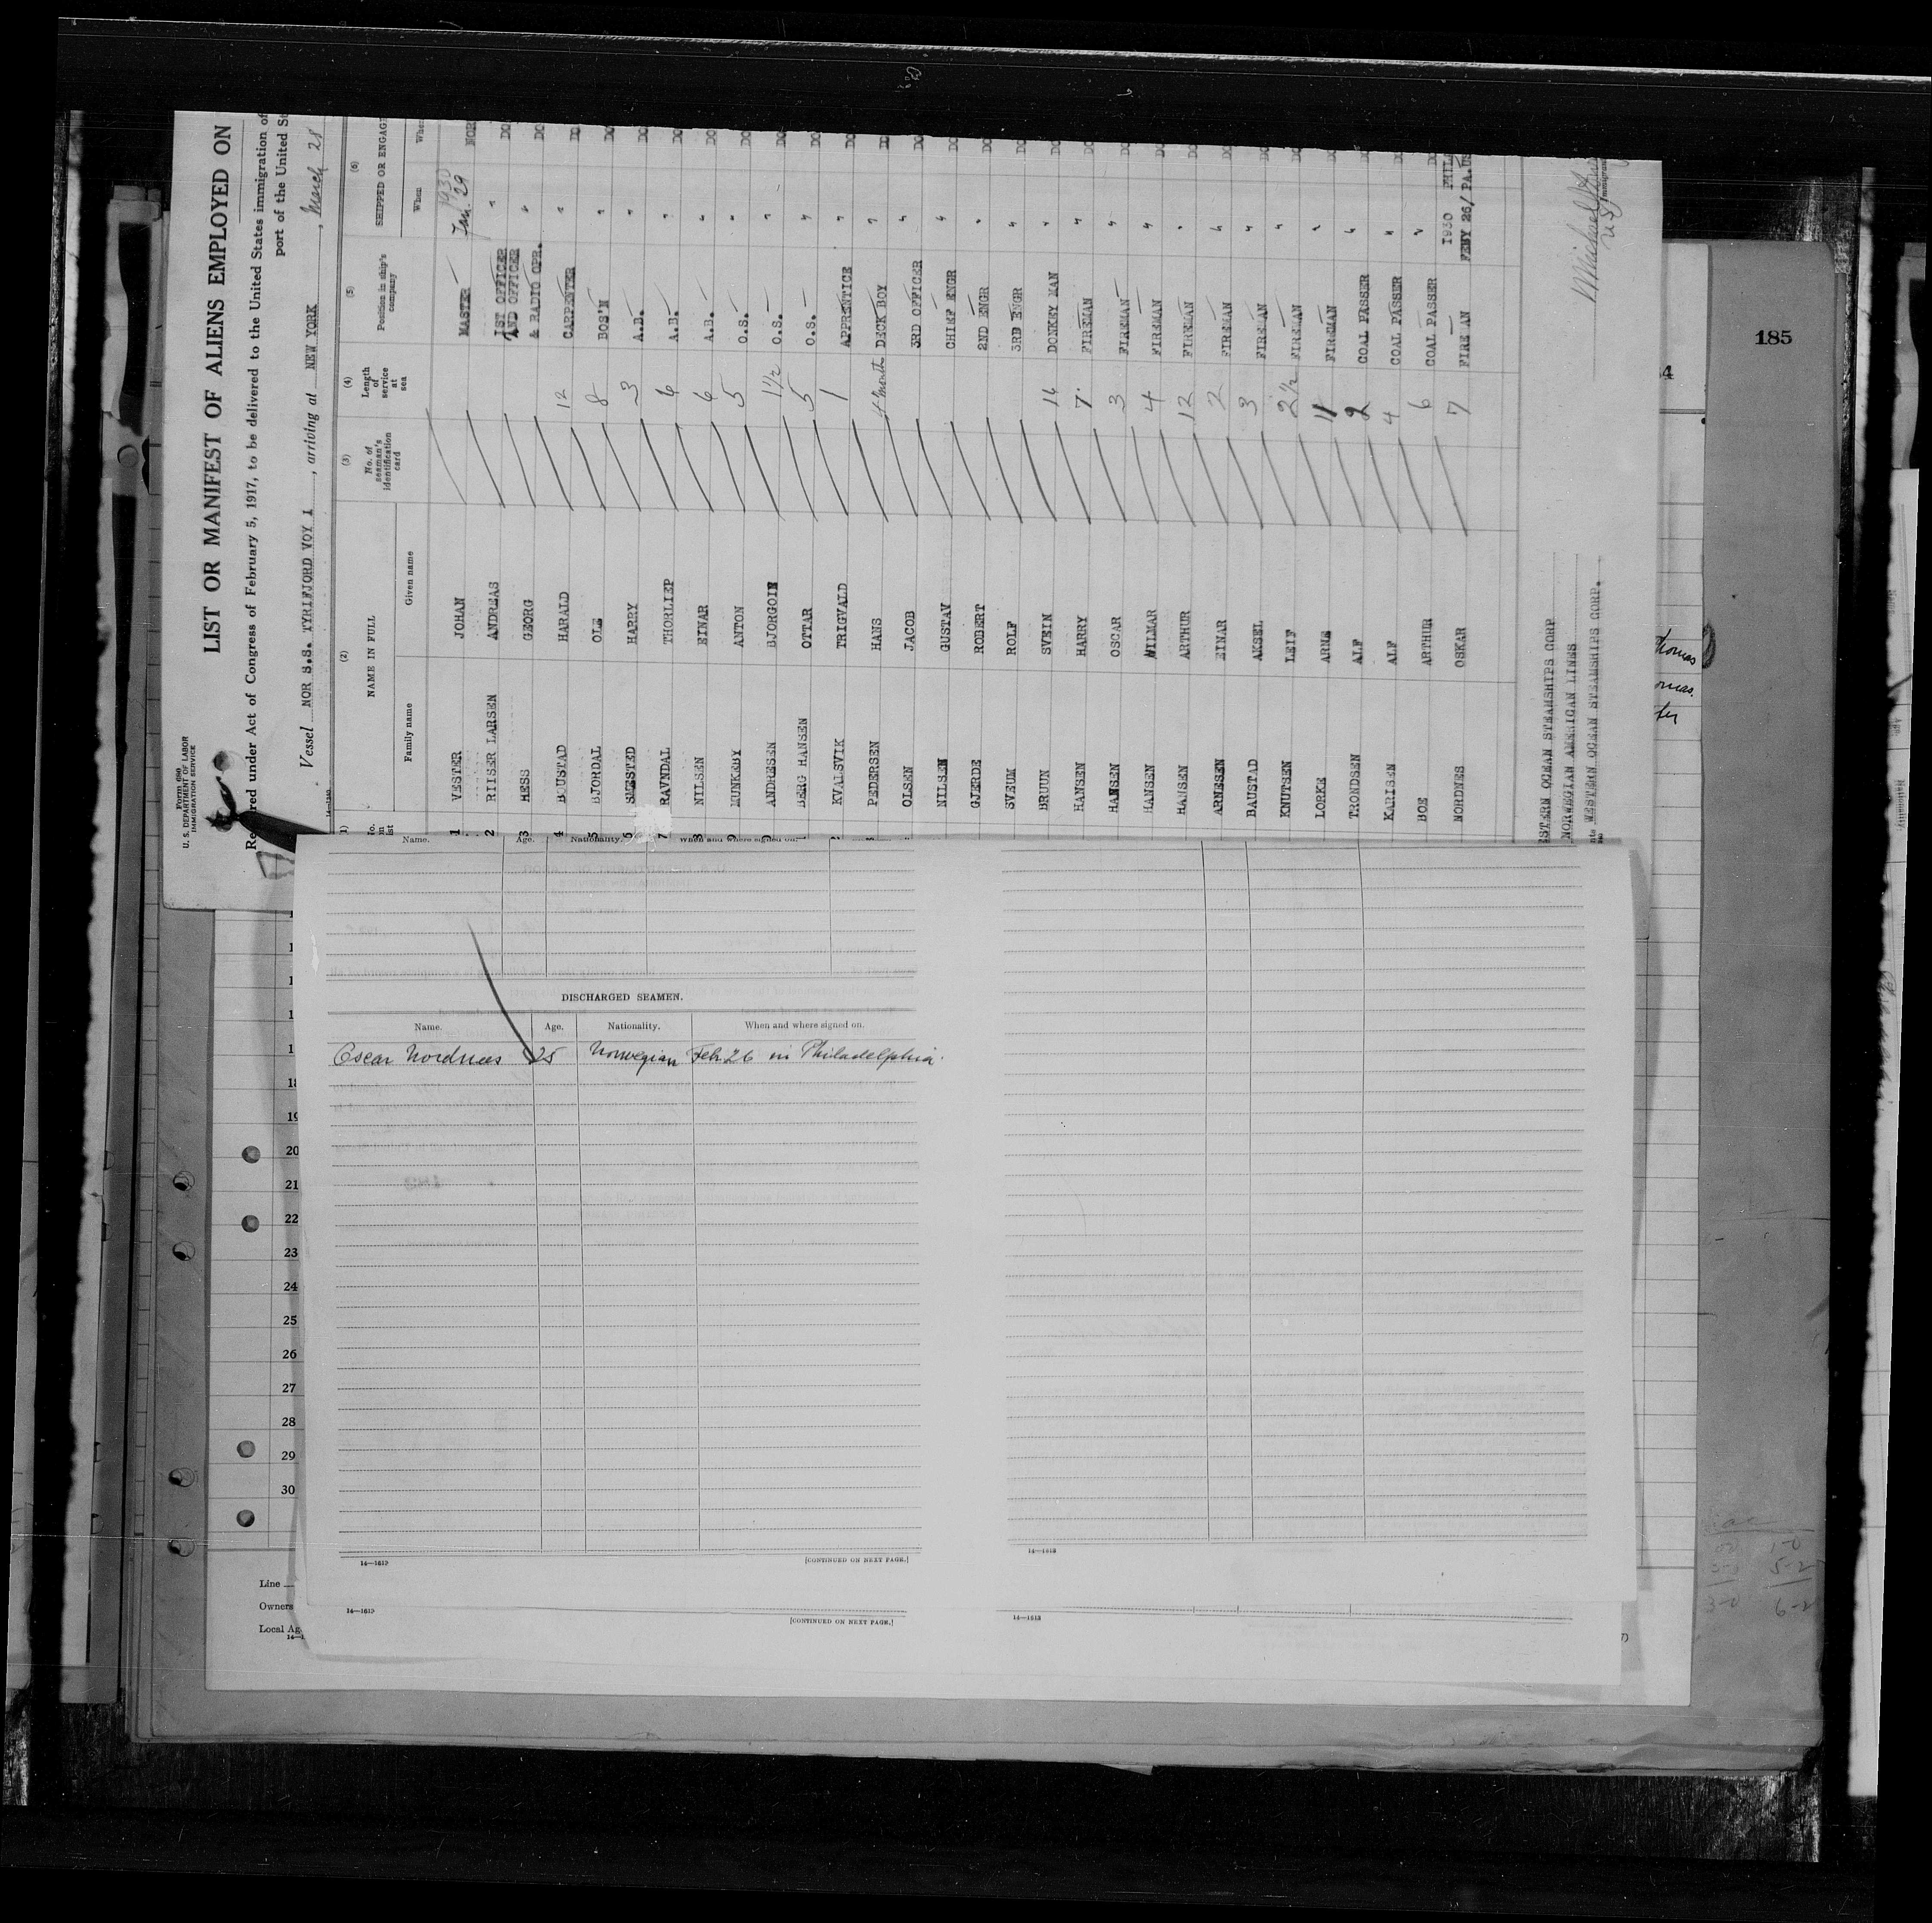 Form 680
U. S. DEPARTMENT OF LABOR
IMMIGRATION SERVICE
LIST OR MANIFEST OF ALIENS EMPLOYED ON
red under Act of Congress of February 5, 1917, to be delivered to the United States immigration of
port of the United St
Vessel NOR S.S. TYRIFJORD VOY 1, arriving at NEW YORK, March 28
(2) (3) (4) (5) (6)
NAME IN FULL No. of seaman's identification card Length of service at sea Position in ship's company SHIPPED OR ENGAG
Family name Given name When Wher
1 VESTER JOHAN MASTER 1930 Jan. 29 NOR
2 RIISER LARSEN ANDREAS 1ST OFFICER " DO
3 HESS GEORG 2ND OFFICER & RADIO OPR. " DO
4 BOUSTAD HARALD 12 CARPENTER " DO
5 BJORDAL OLE 8 BOS'N " DO
6 SMESTED HARRY 3 A.B. " DO
7 RAVNDAL THORLIEP 6 A.B. " DO
8 NILSEN EINAR 6 A.B. " DO
9 MUNKEBY ANTON 5 O.S. " DO
ANDRESEN BJORGOIN 1½ O.S. " DO
BERG HANSEN OTTAR 5 O.S. " DO
KVALSVIK TRIGVALD 1 APPRENTICE " DO
PEDERSEN HANS 4 month DECK BOY " DO
OLSEN JACOB 3RD OFFICER " DO
NILSEN GUSTAV CHIEF ENGR " DO
GJERDE ROBERT 2ND ENGR " DO
SVEUM ROLF 3RD ENGR " DO
BRUUN SVEIN 16 DONKEY MAN " DO
HANSEN HARRY 7 FIREMAN " DO
HANSEN OSCAR 3 FIREMAN " DO
HANSEN WILMAR 4 FIREMAN " DO
HANSEN ARTHUR 12 FIREMAN " DO
ARNESEN EINAR 2 FIREMAN " DO
BAUSTAD AKSEL 3 FIREMAN " DO
KNUTSEN LEIF 2½ FIREMAN " DO
LORKE ARNE 11 FIREMAN " DO
TRONDSEN ALF 2 COAL PASSER " DO
KARISEN ALF 4 COAL PASSER " DO
BOE ARTHUR 6 COAL PASSER " DO
NORDNES OSKAR 7 FIRE AN 1930 FEBY 26/ PHIL PA.US
STERN OCEAN STEAMSHIPS CORP
NORWEGIAN AMERICAN LINES
WESTERN OCEAN STEAMSHIPS CORP.
185
Name. Age. Nationality. When and where signed on.
DISCHARGED SEAMEN.
Name. Age. Nationality. When and where signed on.
Oscar Nordnes 25 Norwegian Feb. 26 in Philadelphia.
18
19
20
21
22
23
24
25
26
27
28
29
30
14—1613 [CONTINUED ON NEXT PAGE.] 14—1613
Line
Owners
Local Ag
14—1613 [CONTINUED ON NEXT PAGE.] 14—1613